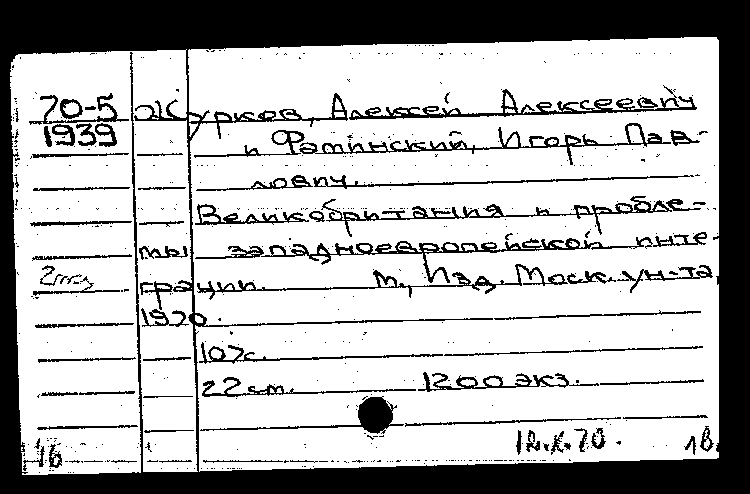 70-5 Журков, Алексей Алексеевич
1939 и Фаминский, Игорь Пав-
лович.
Великобритания и пробле-
мы западноевропейской инте-
2 экз грации. М., Изд. Моск. ун-та,
1970.
107с.
22 см. 1200 экз.
16 12.X.70. 1В.